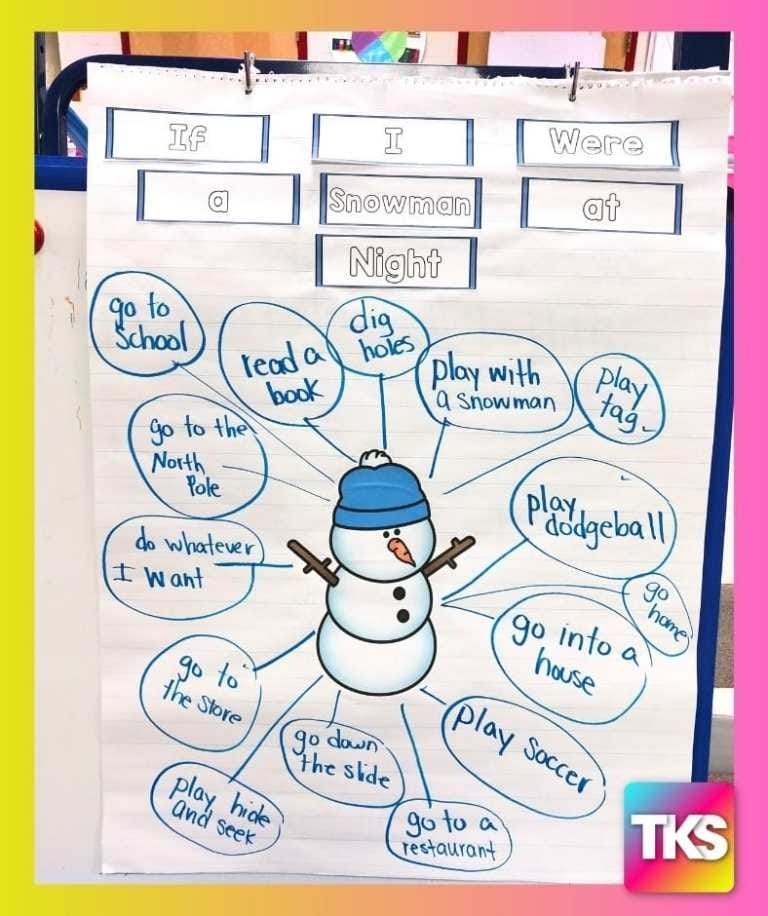 If I Were
a Snowman at
Night
go to
school
read a
book
dig
holes
play with
a snowman
play
tag.
go to the
North
Pole
play
dodgeball
do whatever
I want
go
home
go into a
house
go to
the store
play soccer
go down
the slide
play hide
and seek
go to a
restaurant
TKS